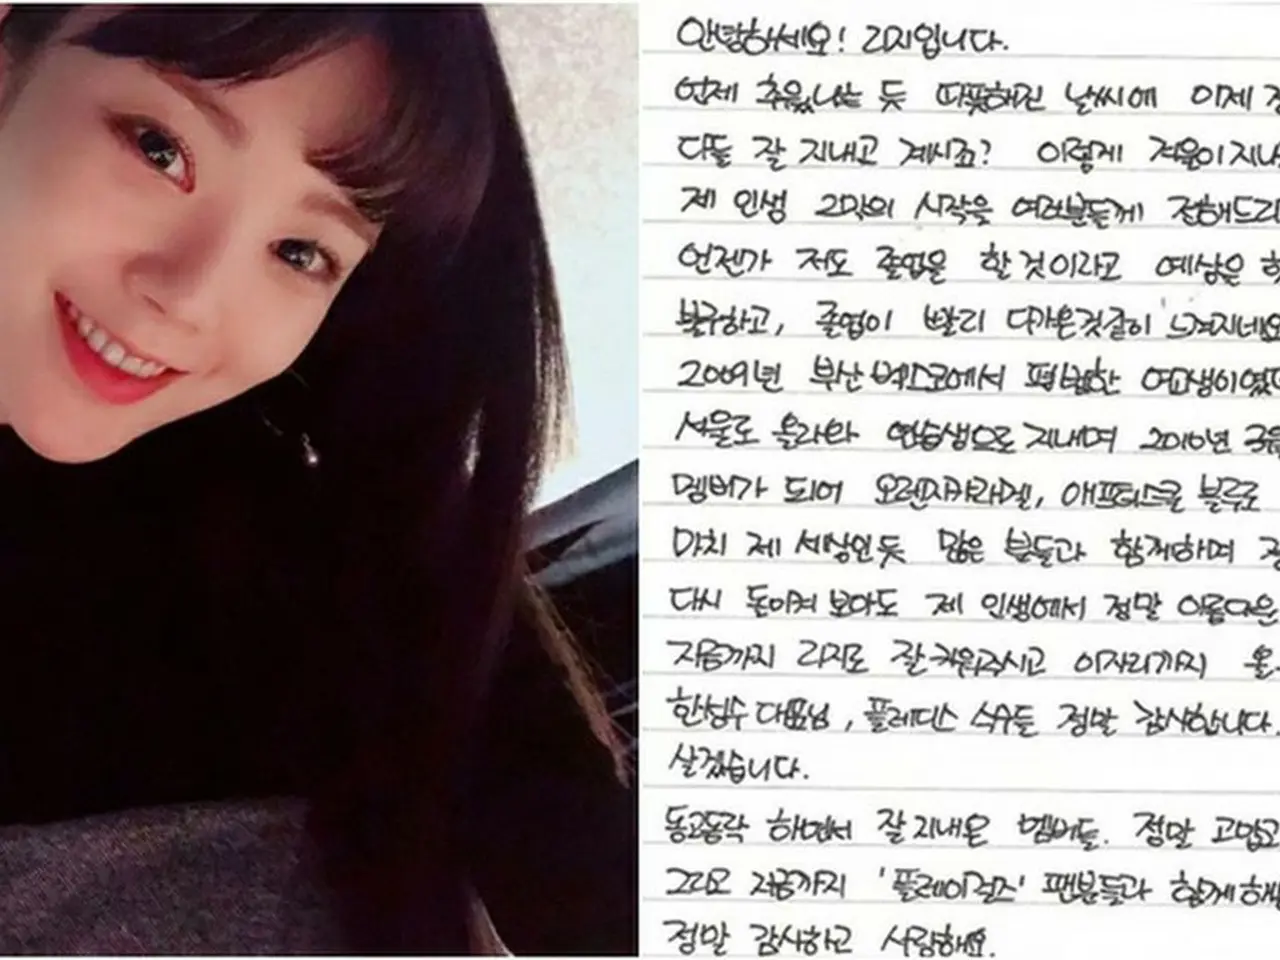 안녕하세요! 리지입니다.
언제 추웠냐는 듯 따뜻해진 날씨에 이제
다들 잘 지내고 계시죠? 이렇게 겨울이 지나
제 인생 2막의 시작을 여러분들께 전해드리
언젠가 저도 졸업을 할 것이라고 예상은 했
불구하고, 졸업이 빨리 다가온것같이 느껴지네요
2009년 부산 벡스코에서 평범한 여고생이었던
서울로 올라와 연습생으로 지내며 2010년
멤버가 되어 오렌지캬라멜, 애프터스쿨 블루로
마치 제 세상인듯 많은 분들과 함께하며
다시 돌이켜 보아도 제 인생에서 정말 아름다운
지금까지 리지로 잘 키워주시고 이자리까지 올
한성수 대표님, 플레디스 식구들 정말 감사합니다.
살겠습니다.
동고동락 하면서 잘 지내온 멤버들. 정말 고맙고
그리고 지금까지 '플레이걸즈' 팬분들과 함께 하
정말 감사하고 사랑해요.